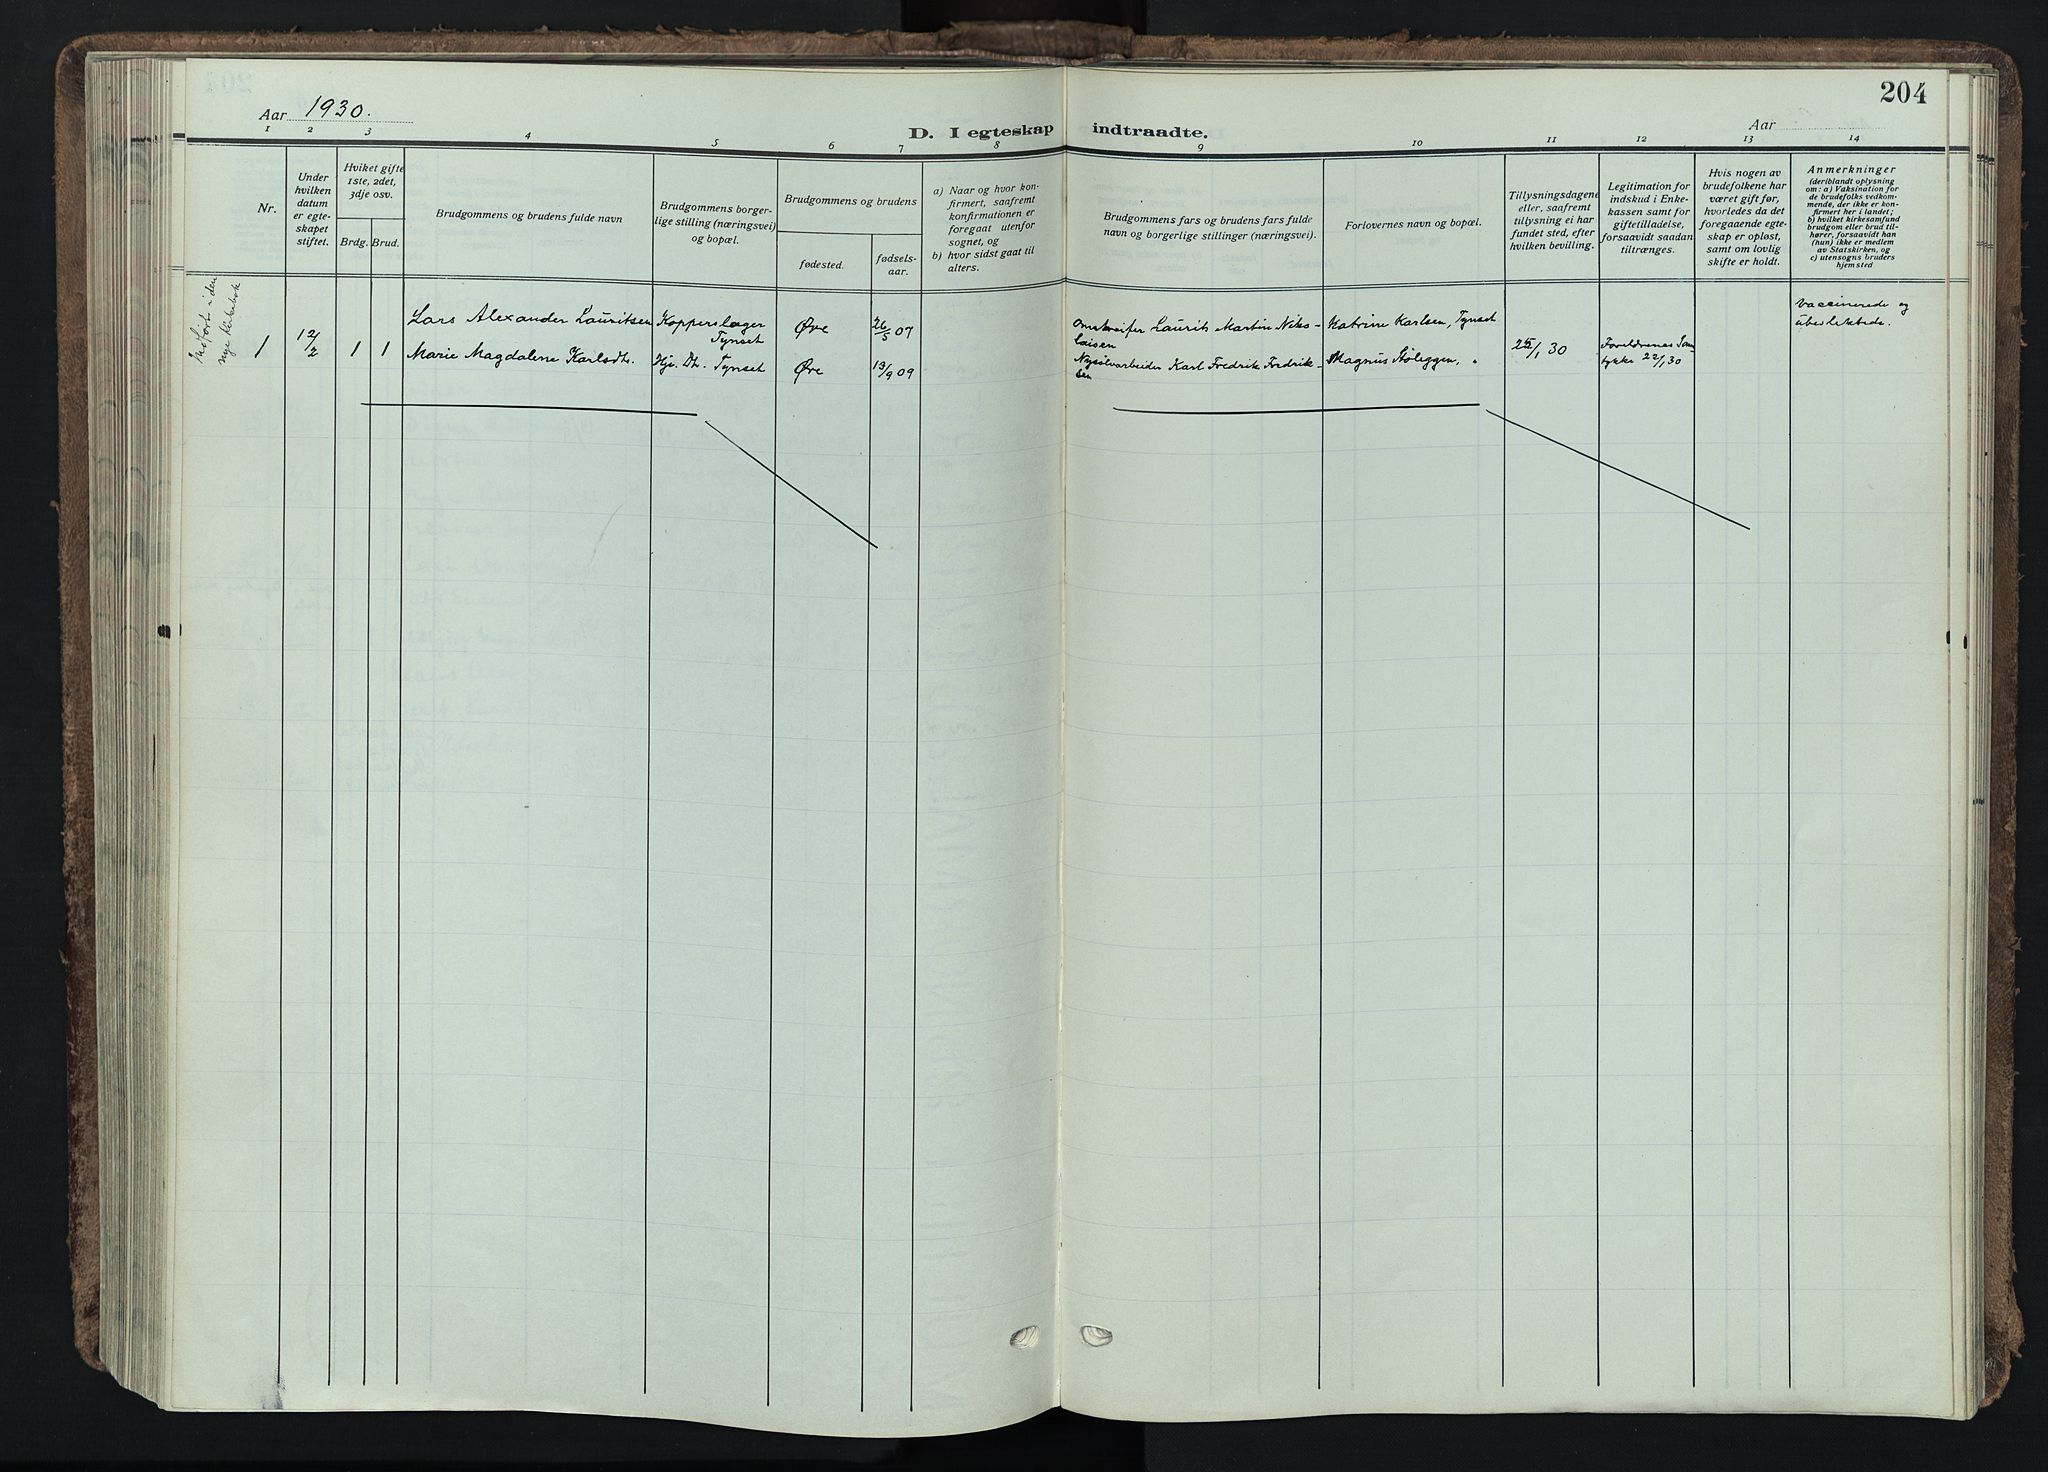 204
Aar 1930.
D. I egteskap indtraadte.
Aar
1 2 3 4 5 6 7 8 9 10 11 12 13 14
Nr.
Under
hvilken
datum
er egte-
skapet
stiftet.
Hviket gifte
1ste, 2det,
3dje osv.
Brdg. Brud.
Brudgommens og brudens fulde navn
Brudgommens borger-
lige stilling (næringsvei)
og bopæl.
Brudgommens og brudens
fødested.
fødsels-
aar.
a) Naar og hvor kon-
firmert, saafremt
konfirmationen er
foregaat utenfor
sognet, og
b) hvor sidst gaat til
alters.
Brudgommens fars og brudens fars fulde
navn og borgerlige stillinger (næringsvei).
Forlovernes navn og bopæl.
Tillysningsdagene
eller, saafremt
tillysning ei har
fundet sted, efter
hvilken bevilling.
Legitimation for
indskud i Enke-
kassen samt for
giftetilladelse,
forsaavidt saadan
tiltrænges.
Hvis nogen av
brudefolkene har
været gift før,
hvorledes da det
foregaaende egte-
skap er opløst,
samt om lovlig
skifte er holdt.
Anmerkninger
(deriblandt oplysning
om: a) Vaksination for
de brudefolks vedkom-
mende, der ikke er kon-
firmert her i landet;
b) hvilket kirkesamfund
brudgom eller brud til-
hører, forsaavidt han
(hun) ikke er medlem
av Statskirken, og
c) utensogns bruders
hjemsted
i den
nye kirkebok
1
12/2
1 1
Lars Alexander Lauritsen
Marie Magdalene Karlsdtr.
Kopperslager
Tynset
Hj. Dt. Tynset
Øvre
Øvre
26/5 07
13/9 09
Omstreifer Laurits Martin Niko-
laisen
Nysølvarbeider Karl Fredrik Fredrik-
sen
Katrine Karlsen, Tynset
Magnus Støleggen, "
/1 30
Foreldrenes Sam-
tykke 22/1 30
Vaccinerede og
ubeslektede.